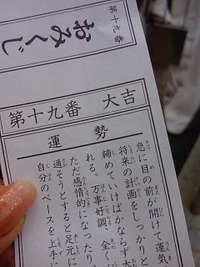 第十九番
おみくじ
第十九番 大吉
運勢
急に目の前が開けて運気
将来の計画をしっかりと
締めていけばかならず大
れる。万事好調、全く
ただ感情的になったり
通そうとすると足元に
自分のペースを上手に